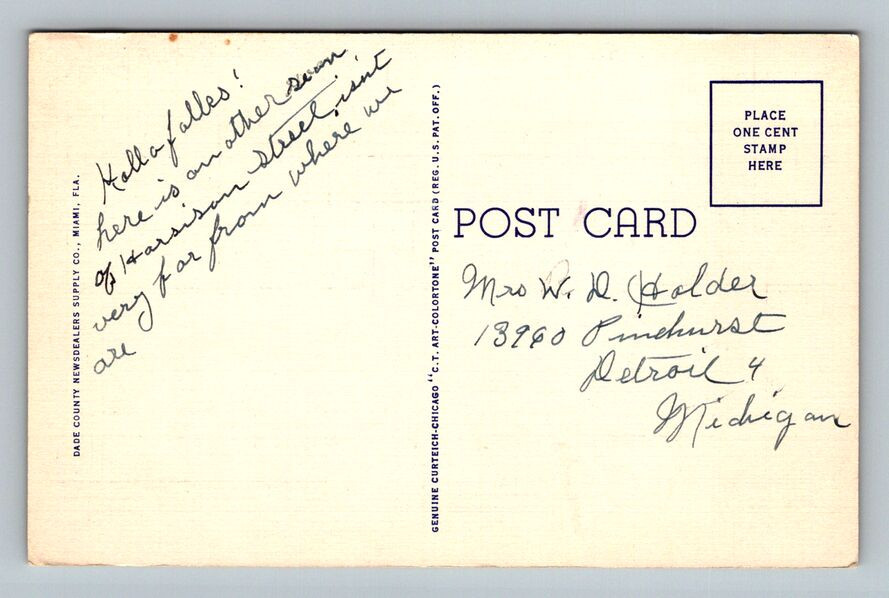 Hallo folks!
here is another
of Harrison Street, isnt
very far from where we
are
DADE COUNTY NEWSDEALERS SUPPLY CO., MIAMI, FLA.
GENUINE CURTEICH-CHICAGO "C.T. ART-COLORTONE" POST CARD (REG. U.S. PAT. OFF.)
PLACE
ONE CENT
STAMP
HERE
POST CARD
Mrs W. D. Holder
13960 Pinehurst
Detroit 4
Michigan